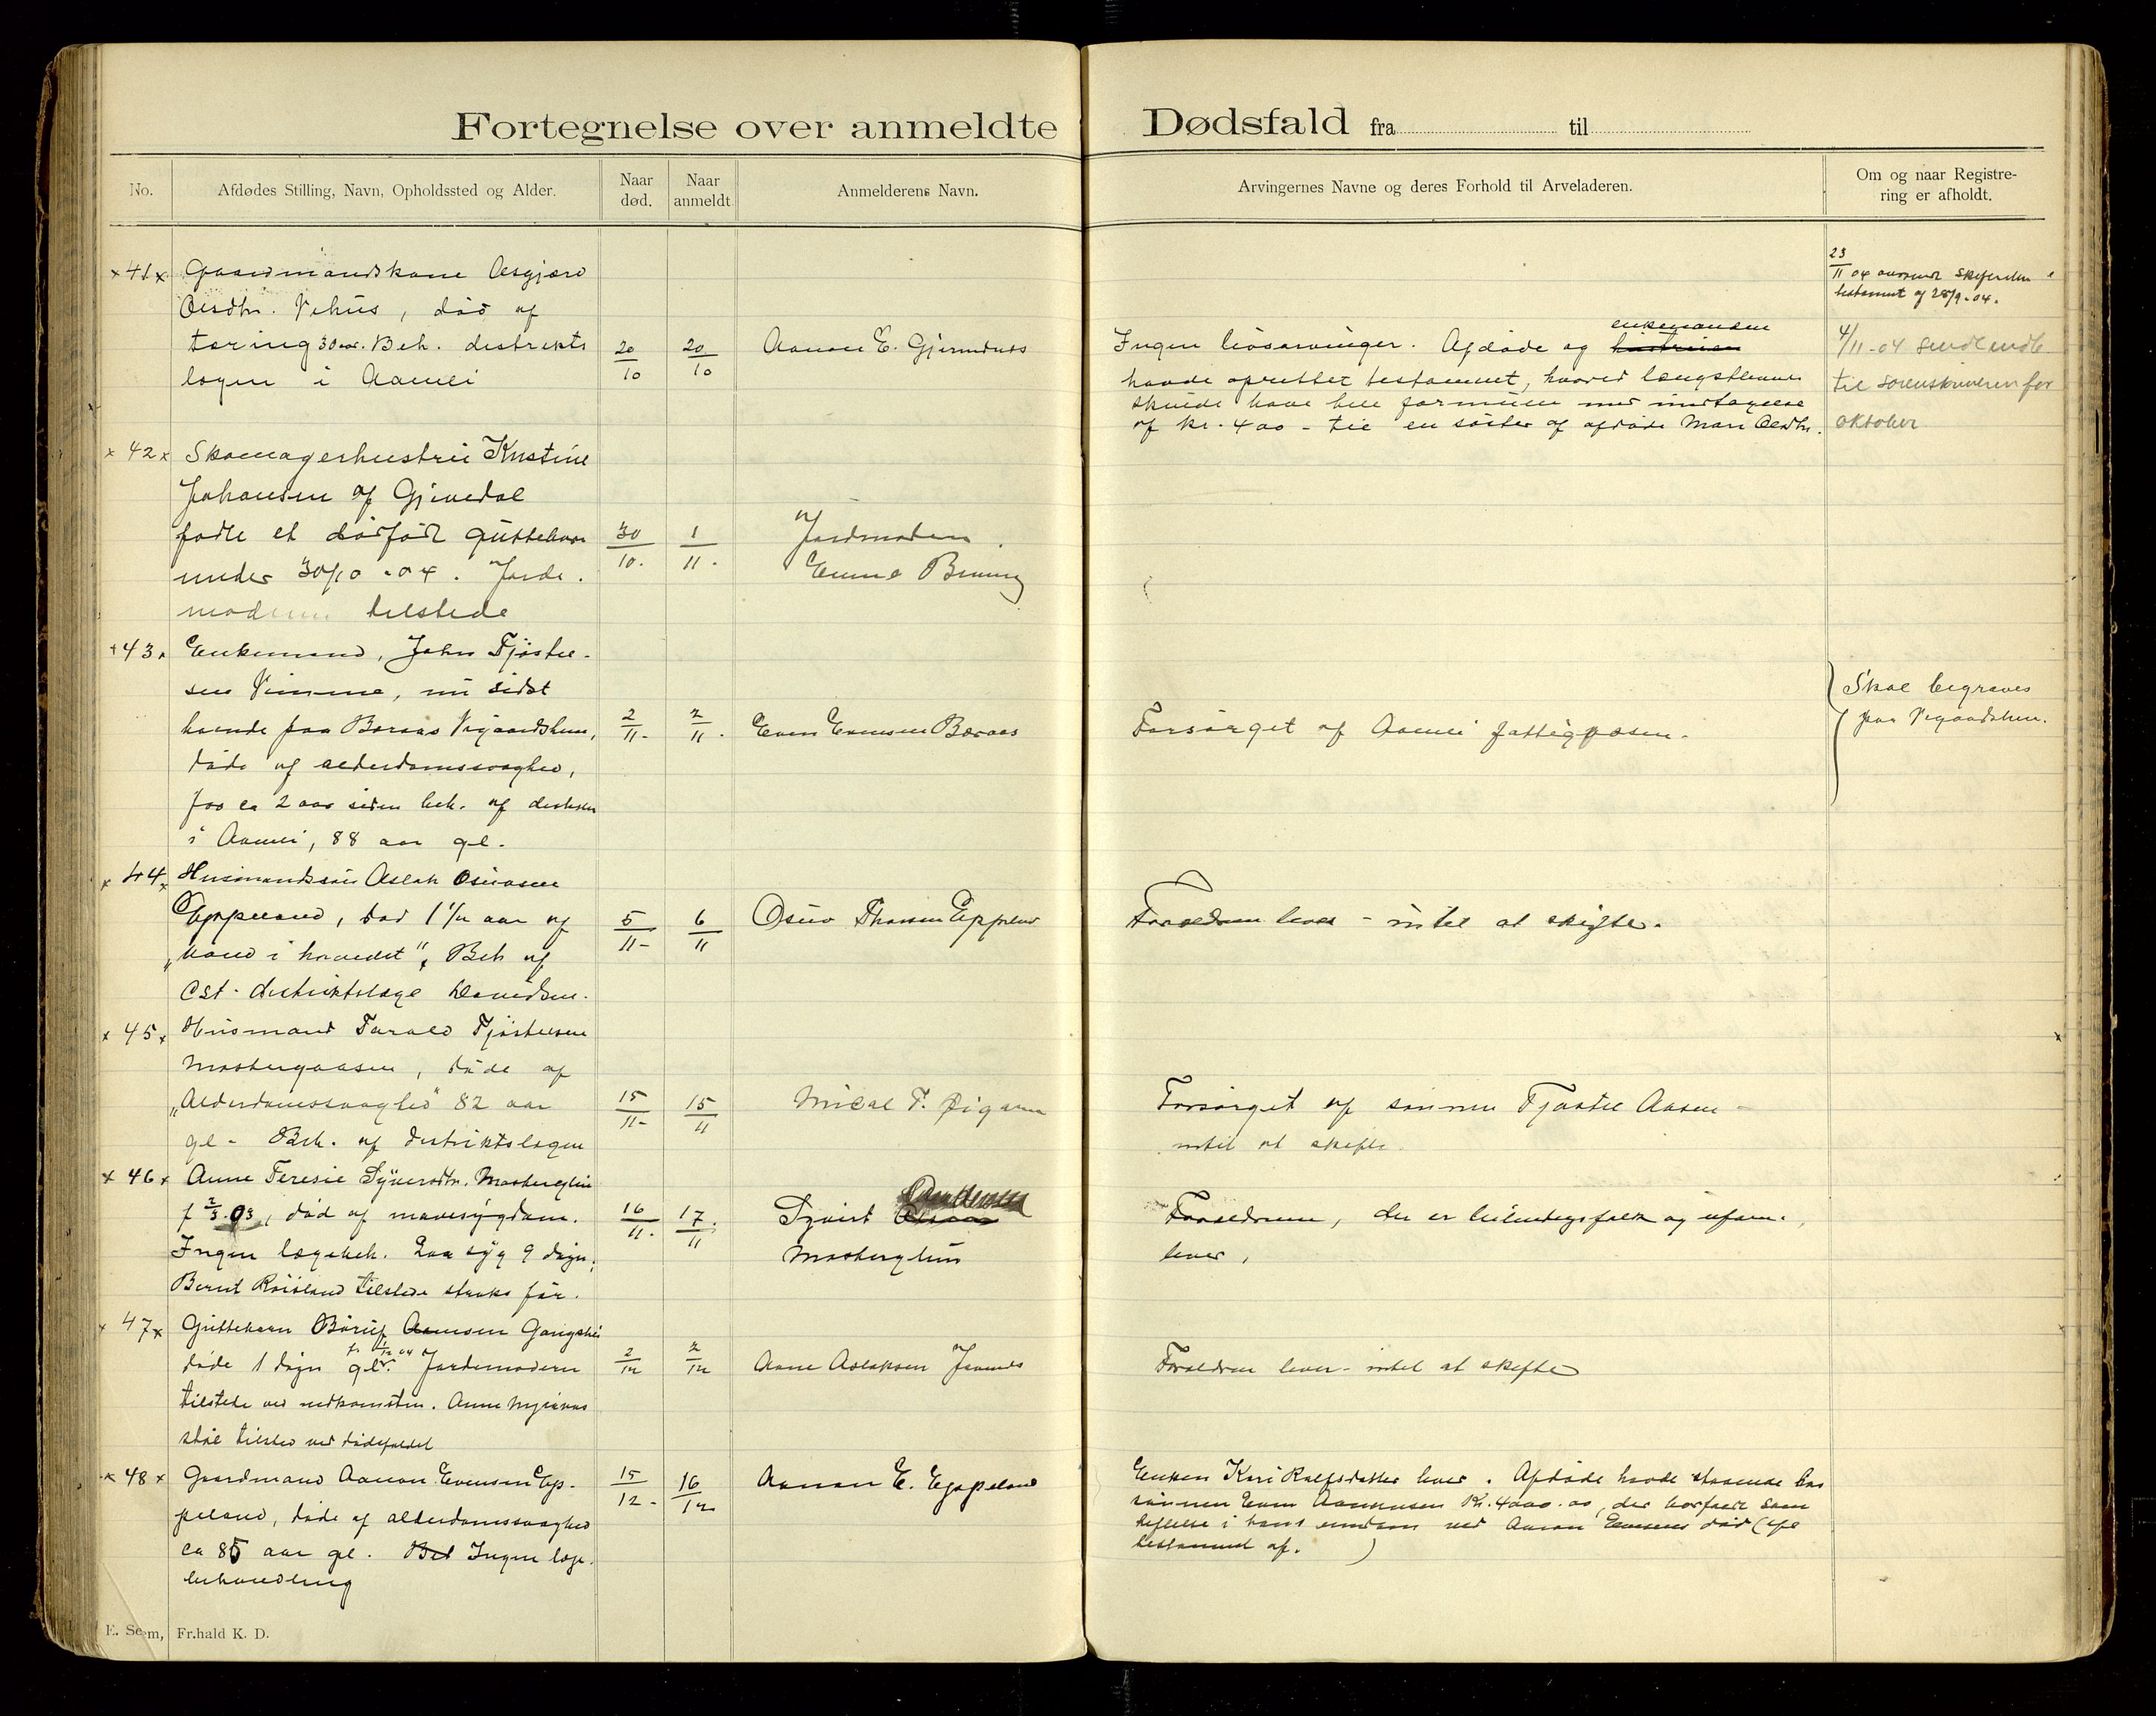 Fortegnelse over anmeldte Dødsfald fra til
No.
Afdødes Stilling, Navn, Opholdssted og Alder.
Naar død.
Naar anmeldt.
Anmelderens Navn.
Arvingernes Navne og deres Forhold til Arveladeren.
Om og naar Registrering er afholdt.
× 41 × Gaardmandskone Aasgjærd
Olsdtr. Vehus, död af
tæring 30 aar. Beh. distrikts
lægen i Aamli
20/10
20/10
Aanon E. Gjermundnes
Ingen livsarvinger. Afdöde og hustruen enkemanden
havde oprettet testament, hvorved længstlevende
skulde have hele formuen med undtagelse
af kr. 400 - til en söster af afdöde Mari Olsdtr.
23/11 04
testament af 28/9-04.
4/11-04 Sendt
til sorenskriveren for
oktober
× 42 × Skomagerhustru Kristine
Johansen af Gjivedal
födte et dödfödt guttebarn
under 30/10 -04. Jorde-
moderen tilstede
30/10.
1/11.
Jordmoderen
Emma
× 43 × Enkemand, John Tjöstel-
sen Vimme, nu sidst
boende paa Boraas Vegaardshei,
döde af alderdomssvaghed,
for ca 2 aar siden beh. af
i Aamli, 88 aar gl.
2/11-
7/11.
Even Evensen Boraas
Forsörget af Aamli fattigvæsen.
Skal begraves
paa Vegaardshei.
× 44 × Husmandssön Aslak Osuvsen
Eppeland, död 1 1/12 aar af
"Vand i hovedet", Beh af
cst. distriktslæge Davidsen.
5/11-
6/11
Osuv Thorsen Eppeland
Foraeldrene lever - intet at skifte.
× 45 × Husmand Tarald Tjöstelsen
Mostergaasen, döde af
"Alderdomssvaghed" 82 aar
gl - Beh. af distriktslægen
15/11-
15/11
Mical T.
Forsörget af sönnen Tjöstel Aasen -
intet at skifte.
× 46 × Anne Teresie Syvertsdtr.
f 2/3. 03, död af mavesygdom.
Ingen lægebeh. Laa syg 9 dögn.
Bernt Röisland tilstede straks för.
16/11.
17/11.
Syvert
Foraeldrene, der er leilændingsfolk og uform.,
lever,
× 47 × Guttebarn Börulf Aamsen
döde 1 dögn gl. f. 1/12 04 Jordemoderen
tilstede ved nedkomsten. Anne
tilsted ved dödsfaldet
2/12
7/12
Aane Aslaksen
Foraeldrene lever - intet at skifte
× 48 × Gaardmand Aanon Evensen Ep-
peland, döde af alderdomssvaghed
ca 85 aar gl. Beh Ingen læge-
behandling
15/12-
16/12
Aanon E. Eppeland
Enken Kari Rolfsdatter lever. Afdöde havde staaende hos
sönnen Even Aanonsen Kr. 4000.00, der bortfaldt som
heftelse i hans eiendom ved Aanon Evensens död (ifl
testament af. )
E. Sem, Fr.hald K. D.